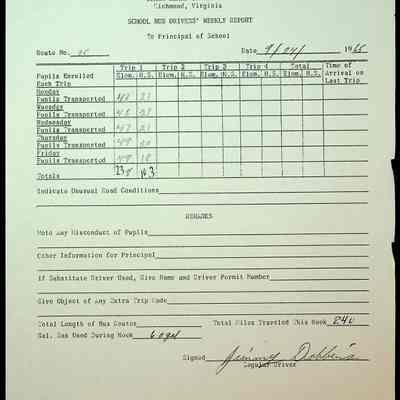 Richmond, Virginia
SCHOOL BUS DRIVERS' WEEKLY REPORT
To Principal of School
Route No. 25 Date 9/24/ 1965
Trip 1 Trip 2 Trip 3 Trip 4 Total Time of
Pupils Enrolled Elem. H.S. Elem. H.S. Elem. H.S. Elem. H.S. Elem. H.S. Arrival on
Each Trip Last Trip
Monday
Pupils Transported 47 21
Tuesday
Pupils Transported 48 23
Wednesday
Pupils Transported 47 21
Thursday
Pupils Transported 49 20
Friday
Pupils Transported 47 18
Totals 238 103
Indicate Unusual Road Conditions
REMARKS
Note Any Misconduct of Pupils
Other Information for Principal
If Substitute Driver Used, Give Name and Driver Permit Number
Give Object of Any Extra Trip Made
Total Length of Bus Routes Total Miles Traveled This Week 240
Gal. Gas Used During Week 60 gal
Signed Jimmy Dobbins
Regular Driver